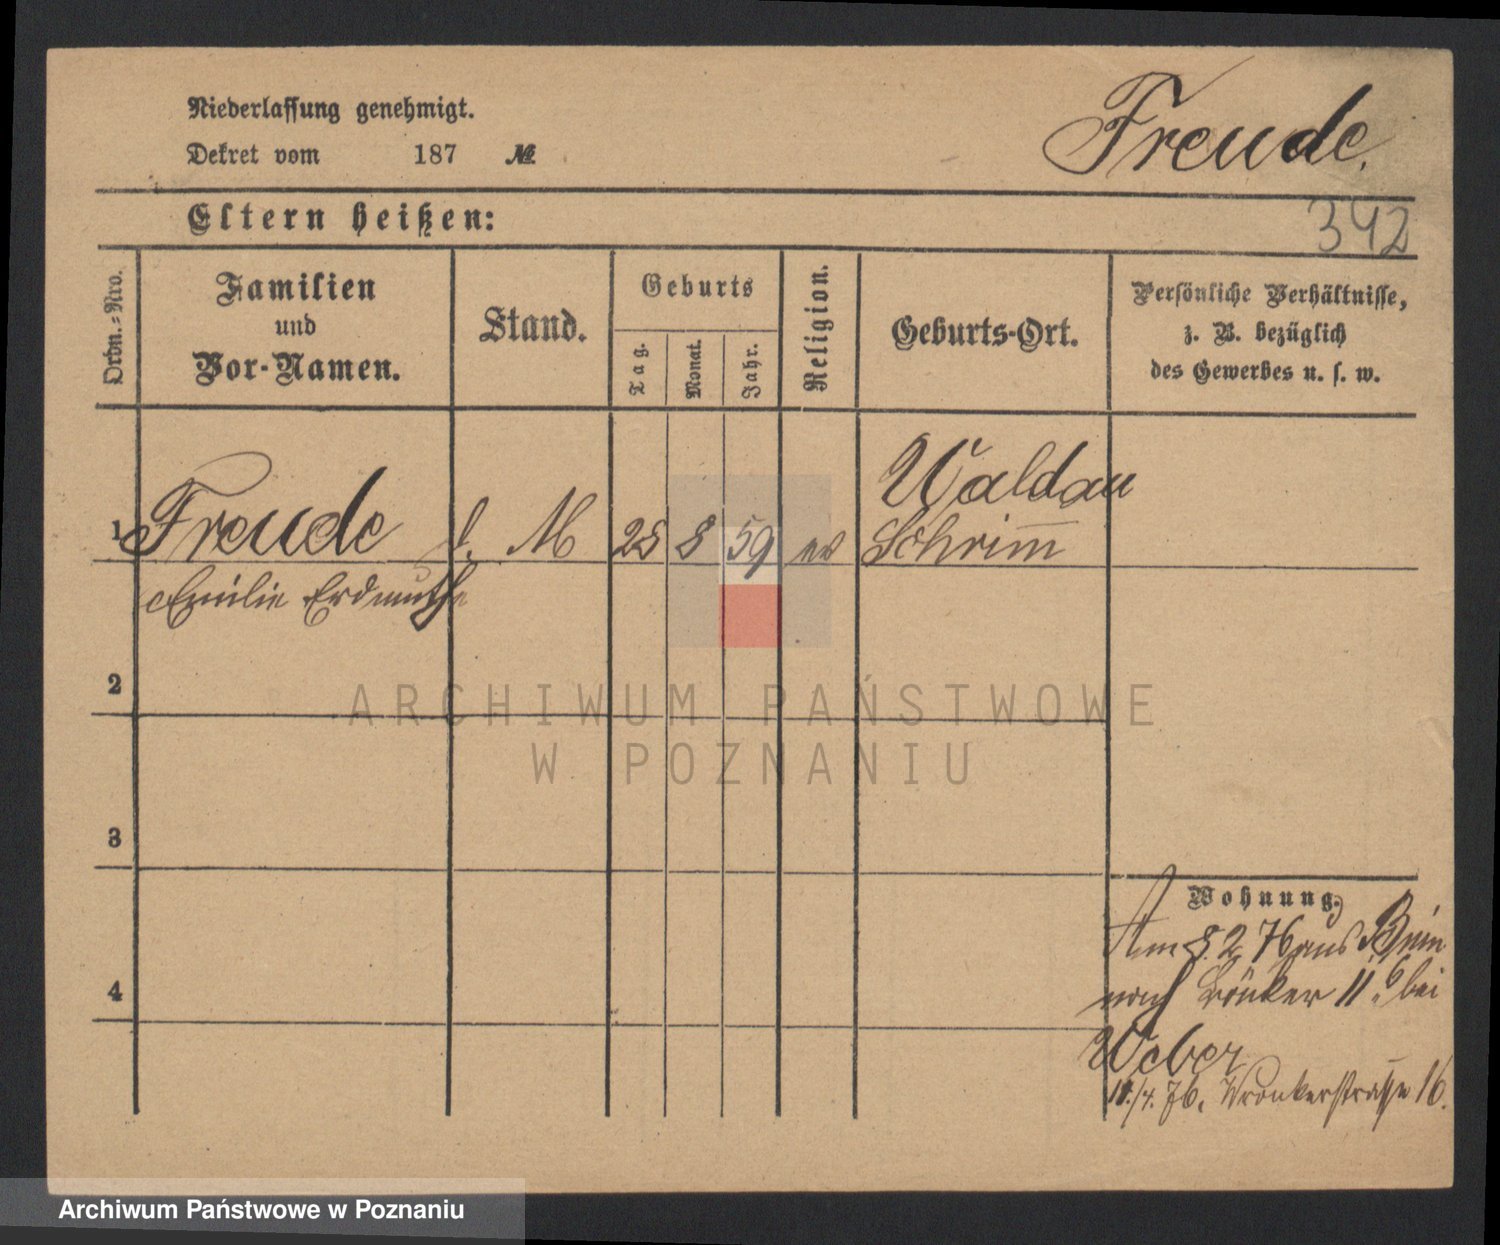 Niederlassung genehmigt.
Freude.
Dekret vom 187 №
Eltern heißen:
342
Ordn.-Nro.
Familien
und
Vor-Namen.
Stand.
Geburts
Tag.
Monat.
Jahr.
Religion.
Geburts-Ort.
Persönliche Verhältnisse,
z. B. bezüglich
des Gewerbes u. s. w.
Waldau
1 Freude d. M 28 8 59 ev Schrimm
Emilie Erdmuthe
2
ARCHIWUM PAŃSTWOWE
W POZNANIU
3
Wohnung.
Am 8. 2 76 aus
4
nach 11 bei
Weber
11./4. 76. Wronkerstrasse 16.
Archiwum Państwowe w Poznaniu